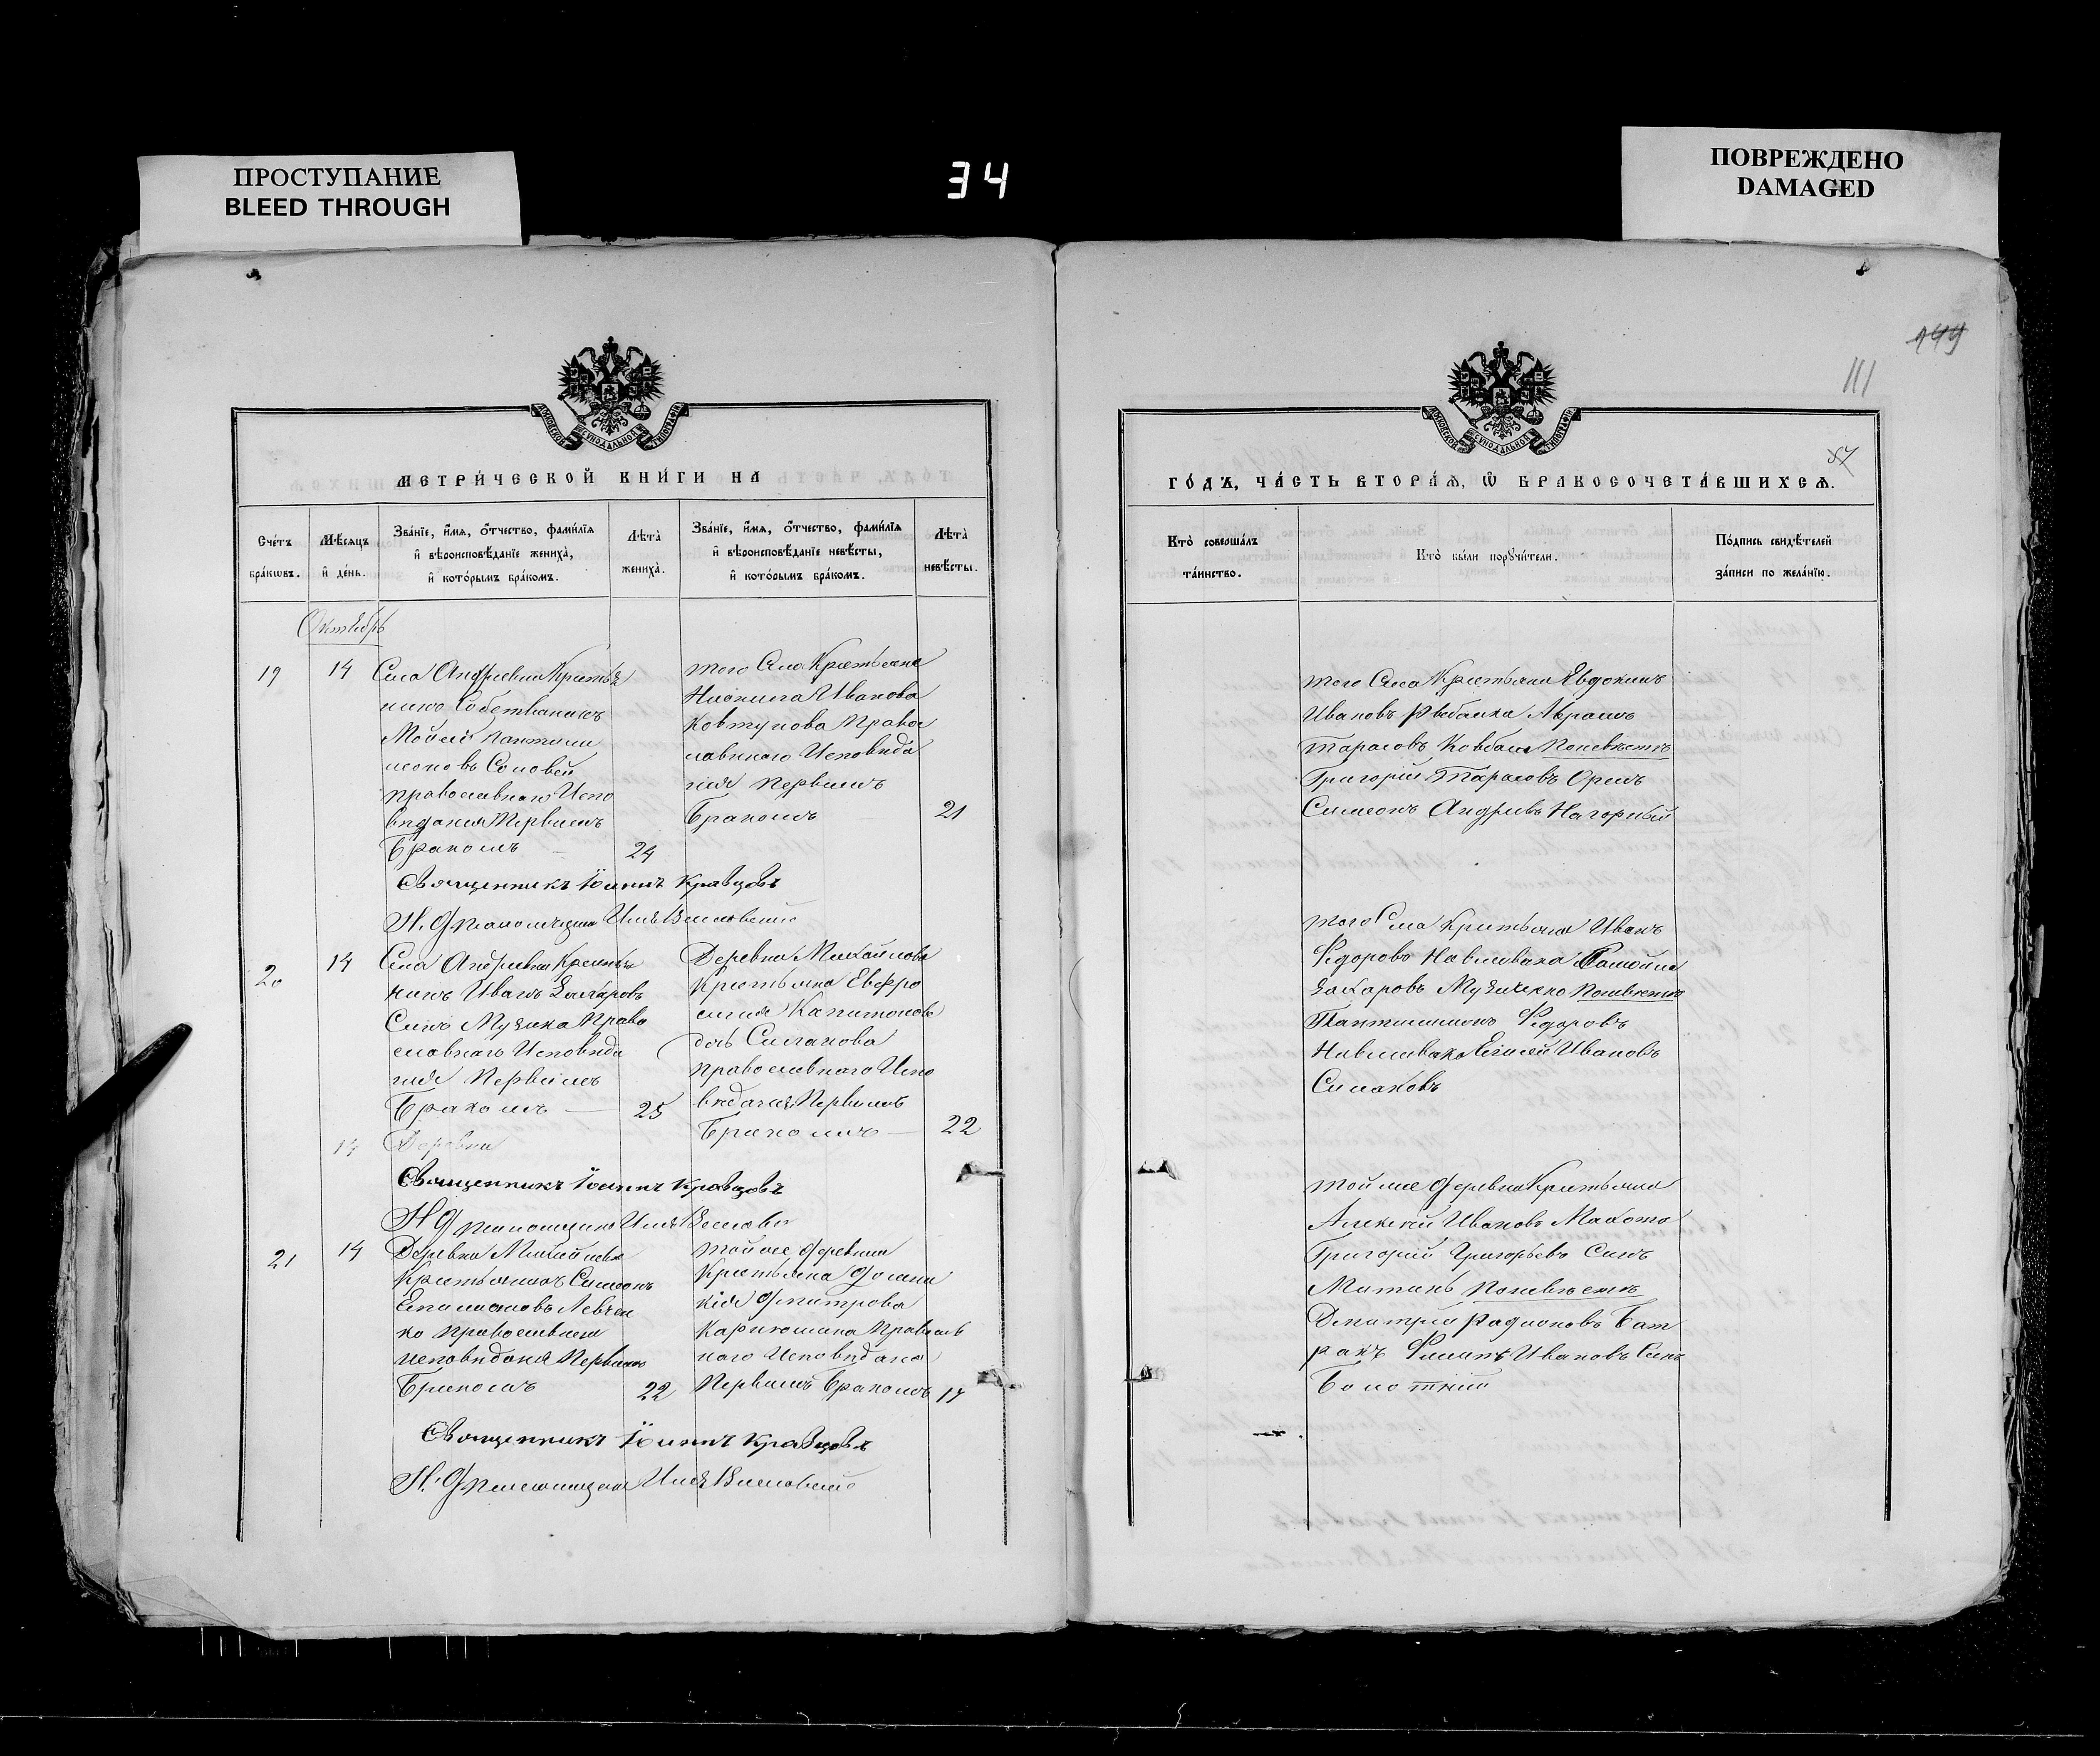 ПРОСТУПАНИЕ
BLEED THROUGH
34
ПОВРЕЖДЕНО
DAMAGED
199
111
57
МЕТРИ́ЧЕСКОЙ КНИ́ГИ НА
Сче́тъ бра́кѡвъ.
Мѣ́сяцъ и҆ де́нь.
Зва́нїе, и҆́мѧ, ѻ҆́тчество, фами́лїѧ
и҆ вѣроисповѣ́данїе жениха̀,
и҆ кото́рымъ бра́комъ.
Лѣта̀ жениха̀.
Зва́нїе, и҆́мѧ, ѻ҆́тчество, фами́лїѧ
и҆ вѣроисповѣ́данїе невѣ́сты,
и҆ кото́рымъ бра́комъ.
Лѣта̀ невѣ́сты.
Октябрь
19
14
Села Андреевки Крестья
нинъ Собственникъ
Моисей Пантели
моновъ Соловей
православнаго Испо
веданія Первымъ
Бракомъ
24
того Села Крестьянка
Иванова
Ковтунова Право
славнаго Исповѣда
нія Первымъ
Бракомъ
21
Священникъ Іоаннъ Кравцовъ
Н. Д Псаломщика Илья
20
14
Села Андреевки Крестья
нинъ Иванъ Захаровъ
Сынъ Музыка Право
славнаго Исповѣда
нія Первымъ
Бракомъ
25
Деревни Михайловки
Крестьянка Евфро
синія Капитонова
дочь Силакова
православнаго Испо
вѣданія Первымъ
Бракомъ
22
14
Деревни
Священникъ Іоаннъ Кравцовъ
Н Д псаломщика Илья
21
14
Деревни Михайловки
Крестьянинъ Симеонъ
Левчен
ко православнаго
исповѣданія Первымъ
Бракомъ
22
той же деревни
Крестьянка Домни
кія Дмитрова
православ
наго Исповѣданія
Первымъ Бракомъ
17
Священникъ Іоаннъ Кравцовъ
Н. Д Псаломщика Илья
ГО́ДЪ, ЧА́СТЬ ВТОРА́Ѧ, Ѽ БРАКОСОЧЕТА́ВШИХСѦ.
Кто̀ соверша́лъ
та́инство.
Кто̀ бы́ли порꙋчи́тели.
По́дпись свидѣ́телей
за́писи по жела́нїю.
того Села Крестьяне Евдокимъ
Ивановъ Рыбалка Аврамъ
Тарасовъ Ковбаса Поневѣстѣ
Григорій Тарасовъ
Симеонъ Андреевъ Нагорный
того Села Крестьяне Иванъ
Федоровъ
Захаровъ Музыченко Поневѣстѣ
Пантелимонъ Федоровъ
Ивановъ
Силаковъ
той же деревни Крестьяне
Алексѣй Ивановъ
Григорій Григорьевъ Сынъ
Поневѣстѣ
Дмитрій Радионовъ Бат
ракъ Филипъ Ивановъ Сынъ